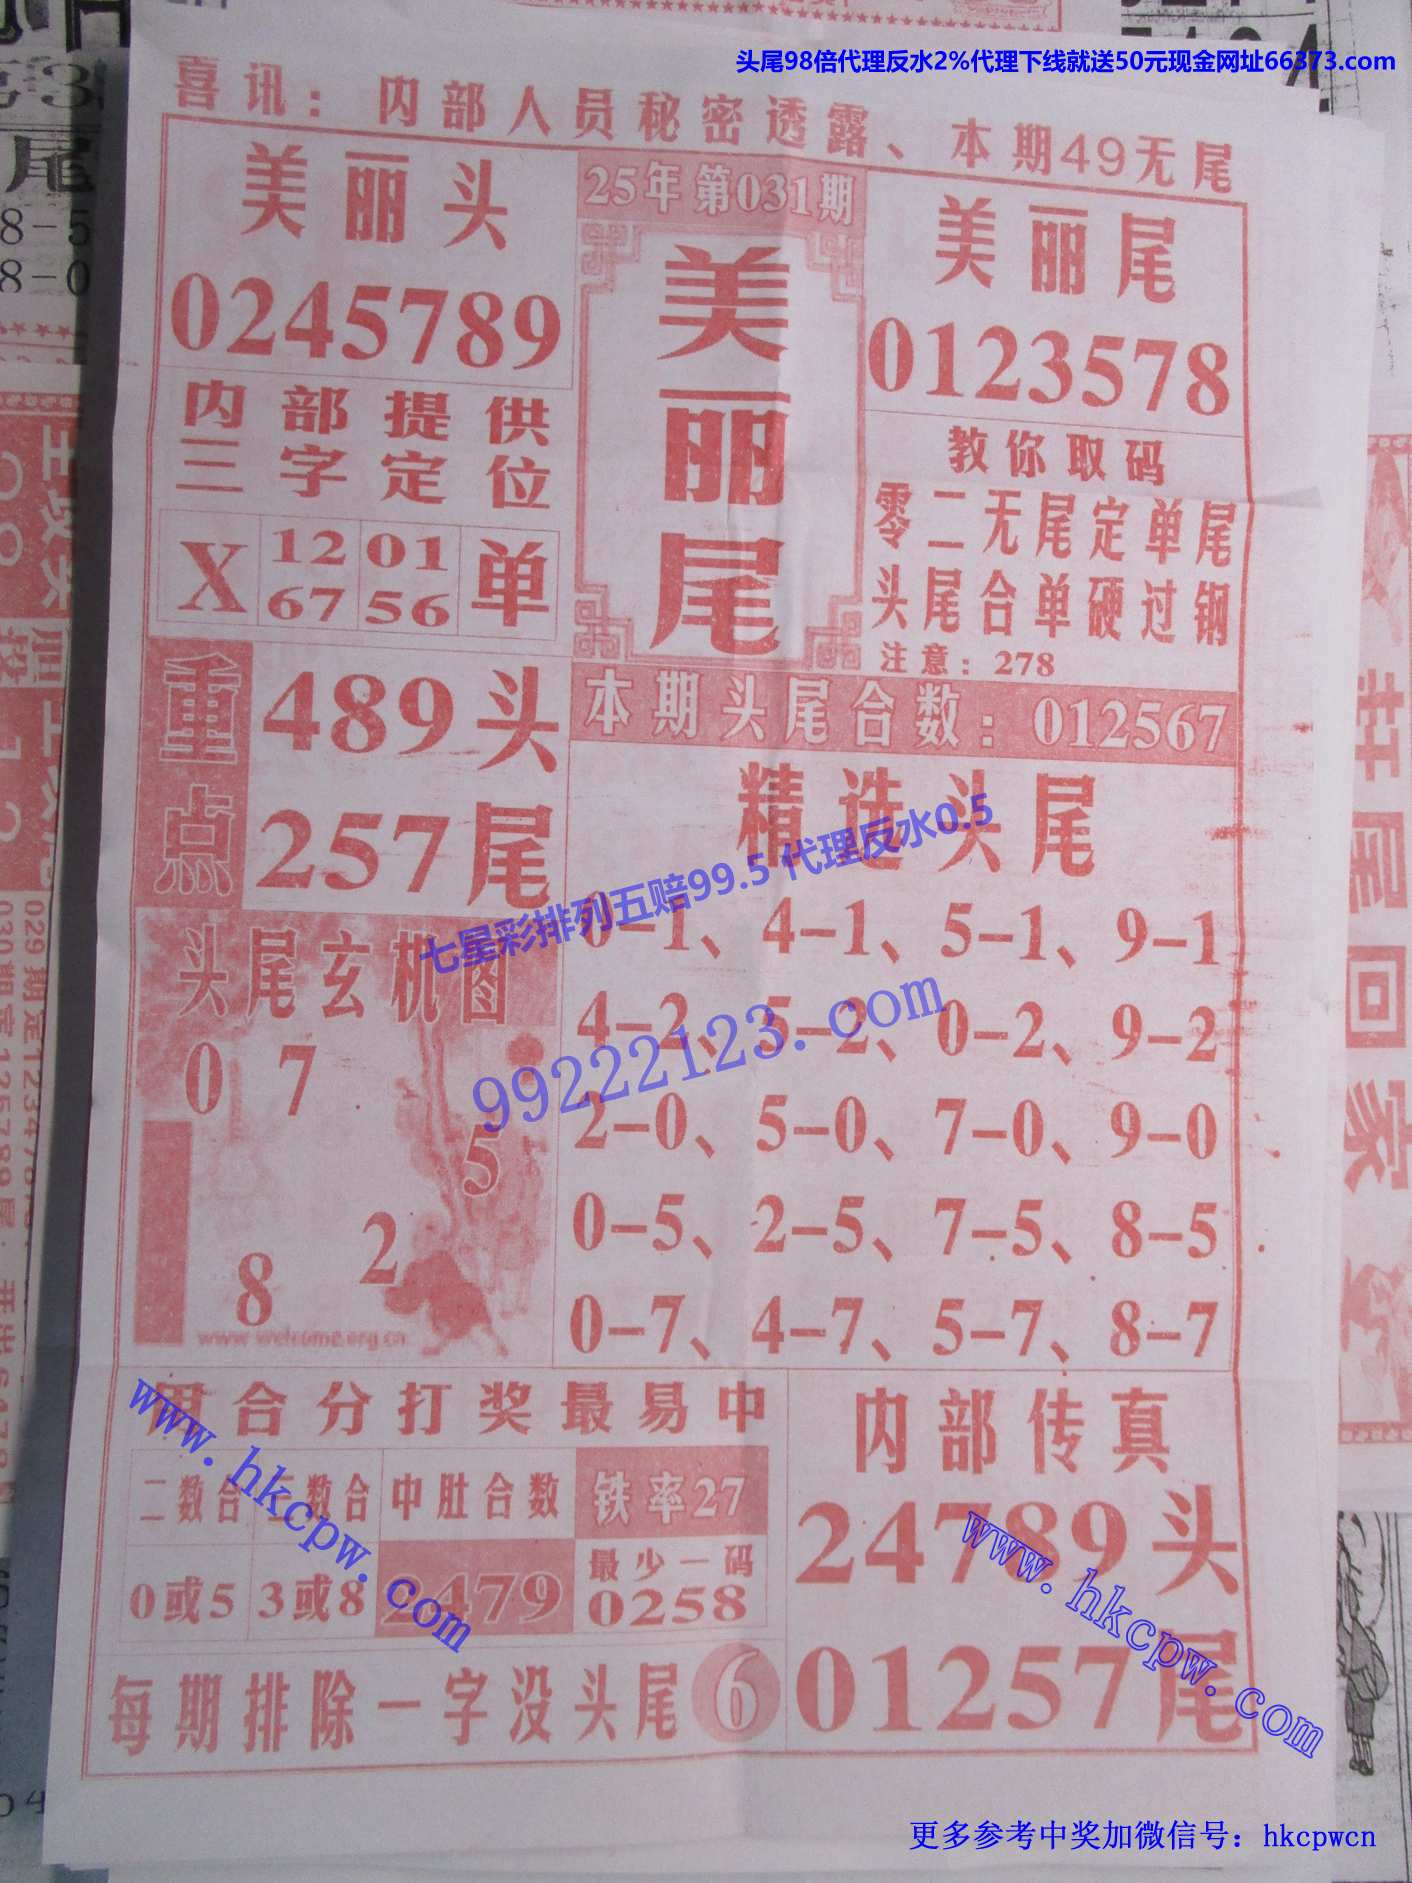 头尾98倍代理反水2%代理下线就送50元现金网址66373.com
喜讯：内部人员秘密透露、本期49无尾
美丽头
0245789
25年第031期
美丽尾
美丽尾
0123578
内部提供
三字定位
X 12 67 01 56 单
教你取码
零二无尾定单尾
头尾合单硬过钢
注意：278
重点
489头
257尾
本期头尾合数：012567
精选头尾
0-1、4-1、5-1、9-1
4-2、5-2、0-2、9-2
2-0、5-0、7-0、9-0
0-5、2-5、7-5、8-5
0-7、4-7、5-7、8-7
七星彩排列五赔99.5 代理反水0.5
99222123.com
头尾玄机图
0 7
5
2
8
www.welcome.org.cn
用合分打奖最易中
二数合 三数合 中肚合数 铁率27
0或5 3或8 2479 最少一码
0258
每期排除一字没头尾 6
内部传真
24789头
01257尾
www.hkcpw.com
www.hkcpw.com
更多参考中奖加微信号：hkcpwcn
打尾回家